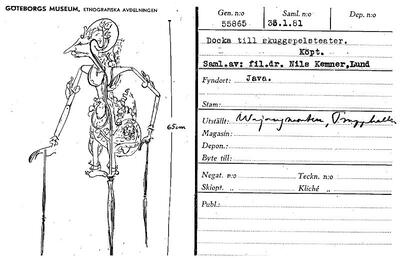 GÖTEBORGS MUSEUM, ETNOGRAFISKA AVDELNINGEN
65cm
Gen. n:o Saml. n:o Dep. n:o
55865 35.1.81
Docka till skuggspelsteater.
Köpt.
Saml.av: fil.dr. Nils Kemner,Lund
Fyndort: Java.
Stam:
Utställt:
Magasin:
Depon.:
Byte till:
Negat. n:o Teckn. n:o
Skiopt. „ Kliché „
Publ.: